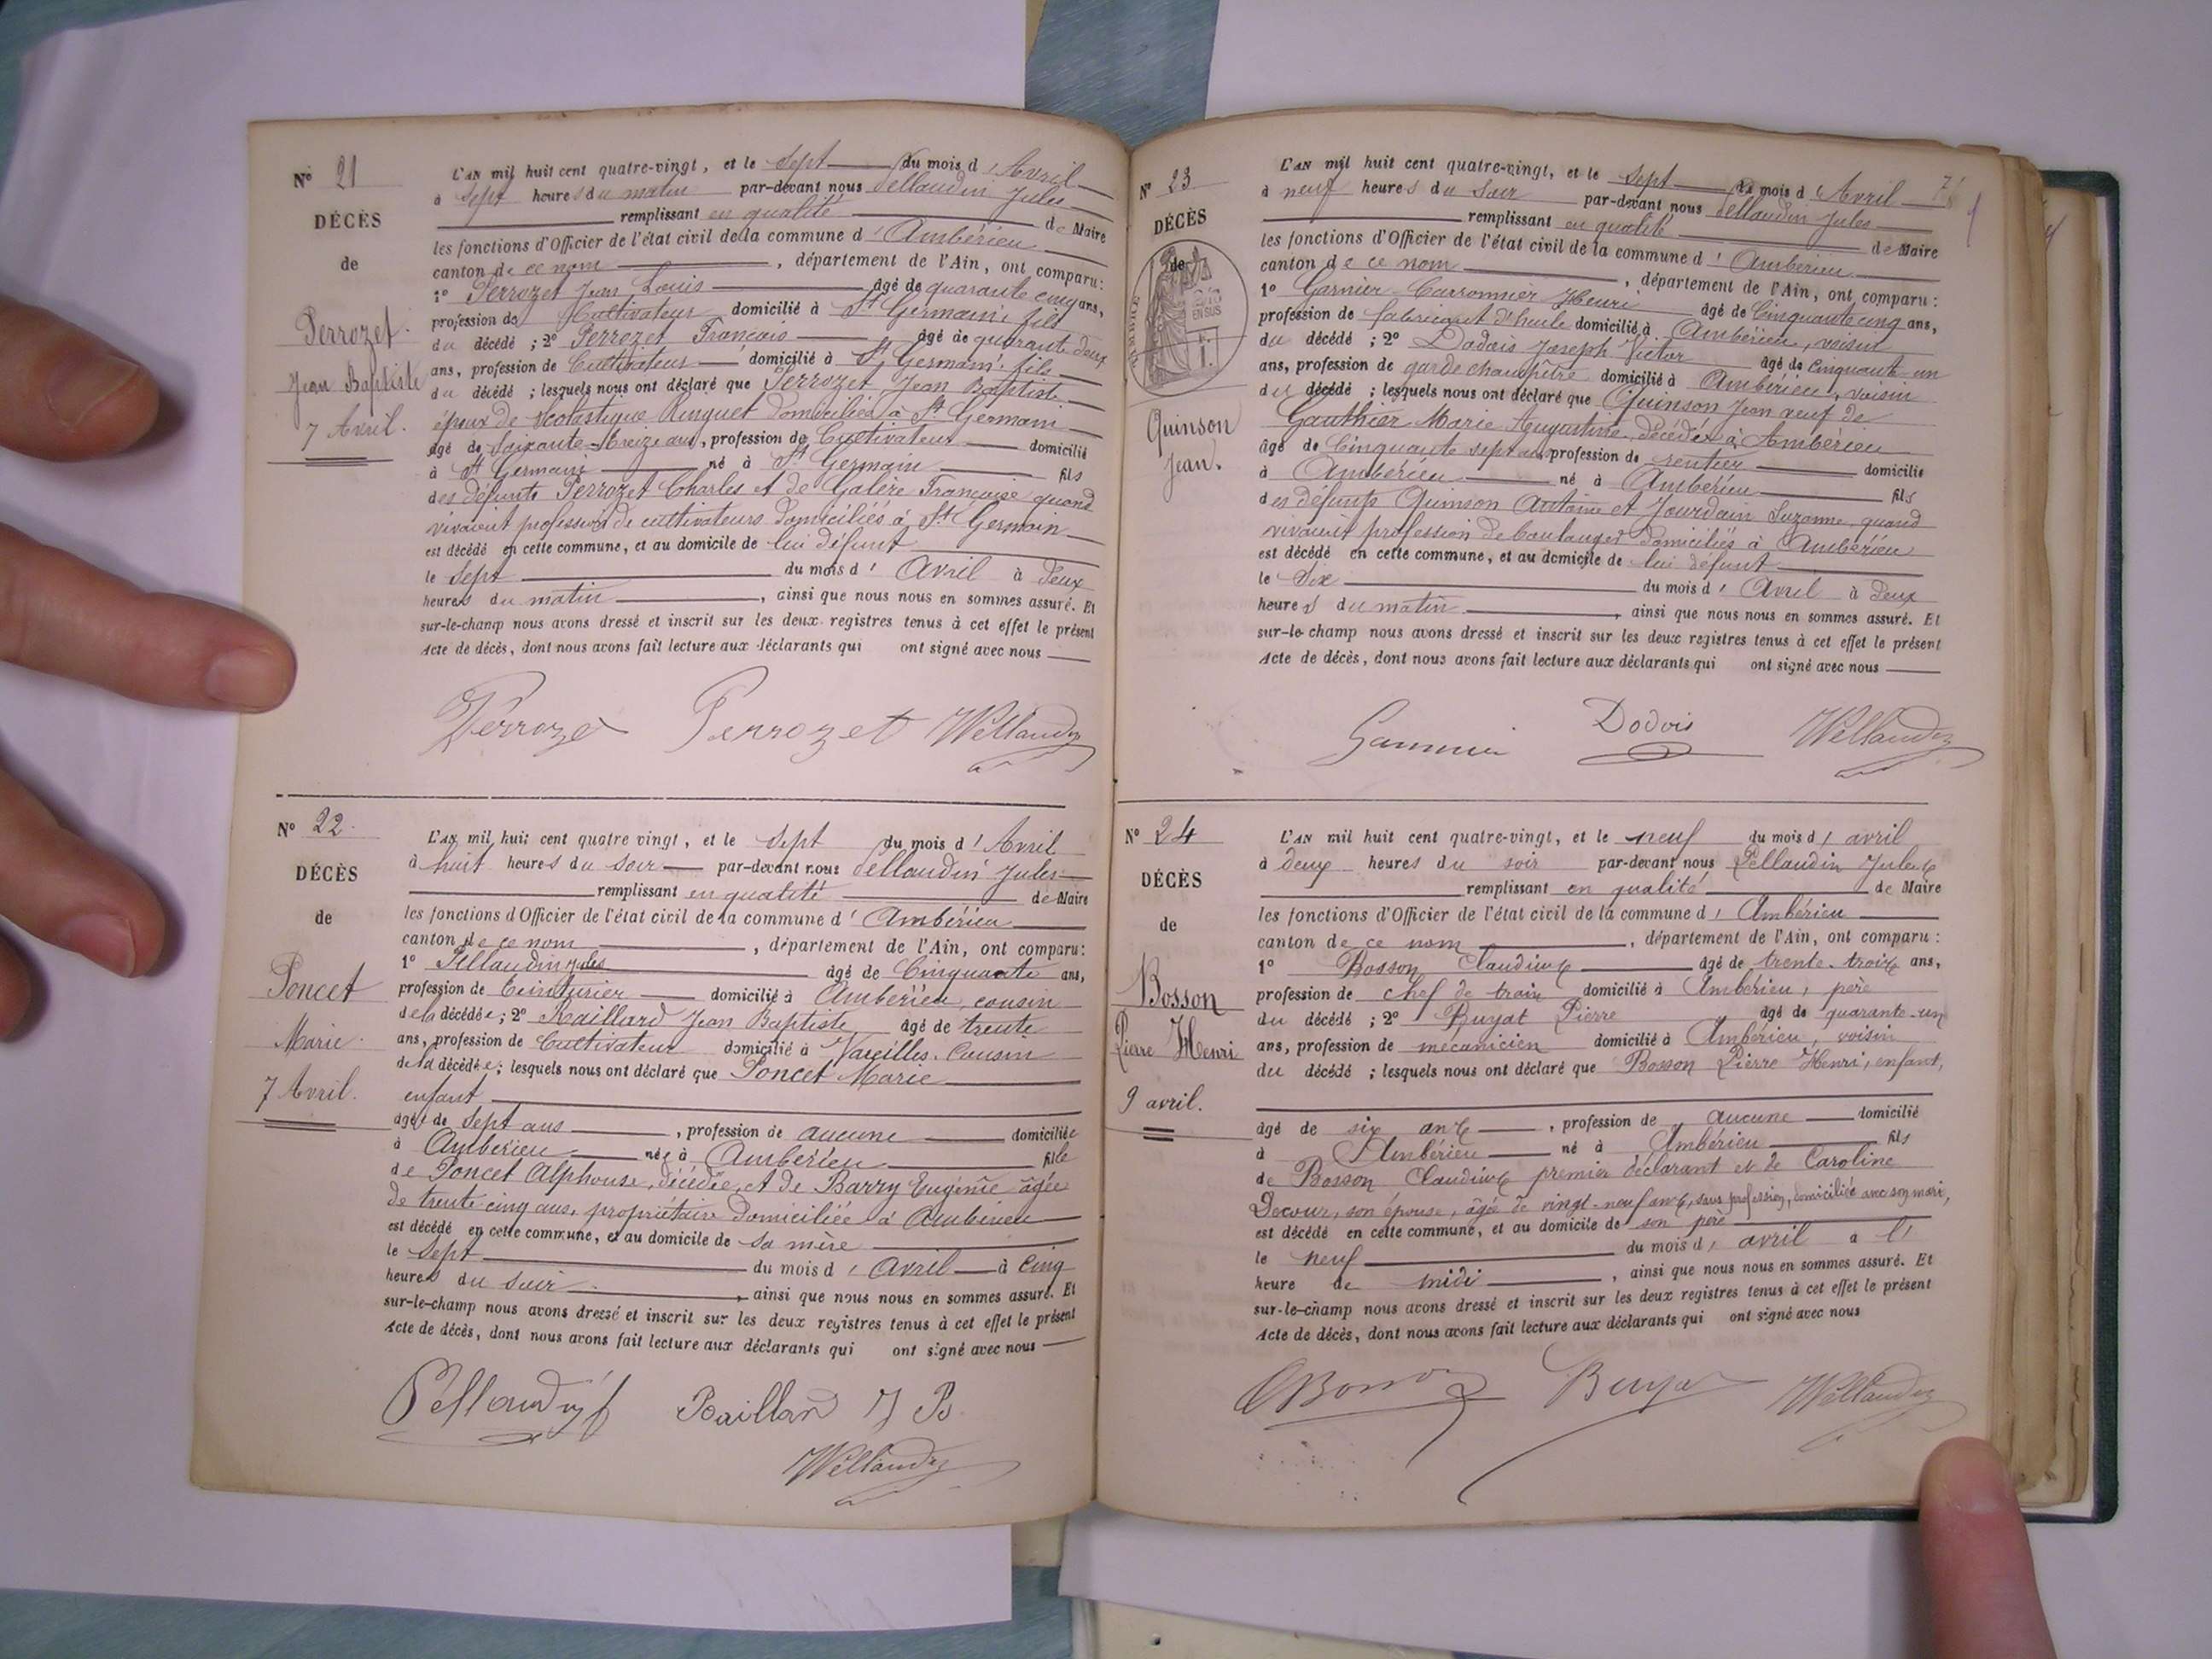 N° 21
DÉCÈS
de
Perrozet
Jean Baptiste
7 Avril.
L'AN mil huit cent quatre-vingt, et le Sept du mois d'Avril
à Sept heures du matin par-devant nous Pellaudin Jules
remplissant en qualité de Maire
les fonctions d'Officier de l'état civil de la commune d'Ambérieu
canton de ce nom, département de l'Ain, ont comparu:
1° Perrozet Jean Louis âgé de quarante cinq ans,
profession de Cultivateur domicilié à St Germain, fils
du décédé; 2° Perrozet Francois âgé de quarante deux
ans, profession de Cultivateur domicilié à St Germain, fils
du décédé; lesquels nous ont déclaré que Perrozet, Jean Baptiste
époux de Scolastique Ringuet domiciliée à St Germain
âgé de Soixante-treize ans, profession de Cultivateur domicilié
à St Germain né à St Germain fils
des défunts Perrozet Charles et de Galère Francoise quand
vivaient profession de cultivateurs domiciliés à St Germain
est décédé en cette commune, et au domicile de lui défunt
le Sept du mois d'Avril à deux
heures du matin, ainsi que nous nous en sommes assuré. Et
sur-le-champ nous avons dressé et inscrit sur les deux registres tenus à cet effet le présent
Acte de décès, dont nous avons fait lecture aux déclarants qui ont signé avec nous
Perrozet Perrozet
N° 22
DÉCÈS
de
Poncet
Marie
7 Avril.
L'AN mil huit cent quatre vingt, et le Sept du mois d'Avril
à huit heures du soir par-devant nous Pellaudin Jules
remplissant en qualité de Maire
les fonctions d'Officier de l'état civil de la commune d'Ambérieu
canton de ce nom, département de l'Ain, ont comparu:
1° Pellaudin Jules âgé de Cinquante ans,
profession de teinturier domicilié à Ambérieu, cousin
de la décédée; 2° Raillard Jean Baptiste âgé de trente
ans, profession de Cultivateur domicilié à Vareilles, Cousin
de la décédée; lesquels nous ont déclaré que Poncet Marie
enfant
âgée de sept ans, profession de aucune domiciliée
à Ambérieu née à Ambérieu fille
de Poncet Alphonse, décédée, et de Barry Eugénie âgée
de trente cinq ans, propriétaire domiciliée à Ambérieu
est décédé en cette commune, et au domicile de sa mère
le Sept du mois d'Avril à Cinq
heures du soir, ainsi que nous nous en sommes assuré. Et
sur-le-champ nous avons dressé et inscrit sur les deux registres tenus à cet effet le présent
Acte de décès, dont nous avons fait lecture aux déclarants qui ont signé avec nous
N° 23
DÉCÈS
de
Quinson
Jean.
L'AN mil huit cent quatre-vingt, et le Sept du mois d'Avril
à neuf heures du Soir par-devant nous Pellaudin Jules
remplissant en qualité de Maire
les fonctions d'Officier de l'état civil de la commune d'Ambérieu
canton de ce nom, département de l'Ain, ont comparu:
1° Garnier Carronnier Henri âgé de Cinquante cinq ans,
profession de fabricant d'huile domicilié à Ambérieu, voisin
du décédé; 2° Dodois Joseph Victor âgé de Cinquante un
ans, profession de garde champêtre domicilié à Ambérieu, voisin
du décédé; lesquels nous ont déclaré que Quinson Jean veuf de
Gauthier Marie Augustine, décédée à Ambérieu
âgé de Cinquante sept ans profession de rentier domicilié
à Ambérieu né à Ambérieu fils
des défunts Quinson Antoine et Jourdain Suzanne, quand
vivaient profession de boulanger domiciliés à Ambérieu
est décédé en cette commune, et au domicile de lui défunt
le Six du mois d'Avril à deux
heures du matin, ainsi que nous nous en sommes assuré. Et
sur-le-champ nous avons dressé et inscrit sur les deux registres tenus à cet effet le présent
Acte de décès, dont nous avons fait lecture aux déclarants qui ont signé avec nous
Dodois
N° 24
DÉCÈS
de
Bosson
Pierre Henri
9 avril.
L'AN mil huit cent quatre-vingt, et le neuf du mois d'avril
à deux heures du soir par-devant nous Pellaudin Jules
remplissant en qualité de Maire
les fonctions d'Officier de l'état civil de la commune d'Ambérieu
canton de ce nom, département de l'Ain, ont comparu:
1° Bosson Claudius âgé de trente-trois ans,
profession de chef de train domicilié à Ambérieu, père
du décédé; 2° Buyat Pierre âgé de quarante-un
ans, profession de mécanicien domicilié à Ambérieu, voisin
du décédé; lesquels nous ont déclaré que Bosson Pierre Henri, enfant,
âgé de six ans, profession de aucune domicilié
à Ambérieu né à Ambérieu fils
de Bosson Claudius premier déclarant et de Caroline
Decour, son épouse, âgée de vingt-neuf ans, sans profession, domiciliée avec son mari,
est décédé en cette commune, et au domicile de son père
le neuf du mois d'avril à l'
heure de midi, ainsi que nous nous en sommes assuré. Et
sur-le-champ nous avons dressé et inscrit sur les deux registres tenus à cet effet le présent
Acte de décès, dont nous avons fait lecture aux déclarants qui ont signé avec nous